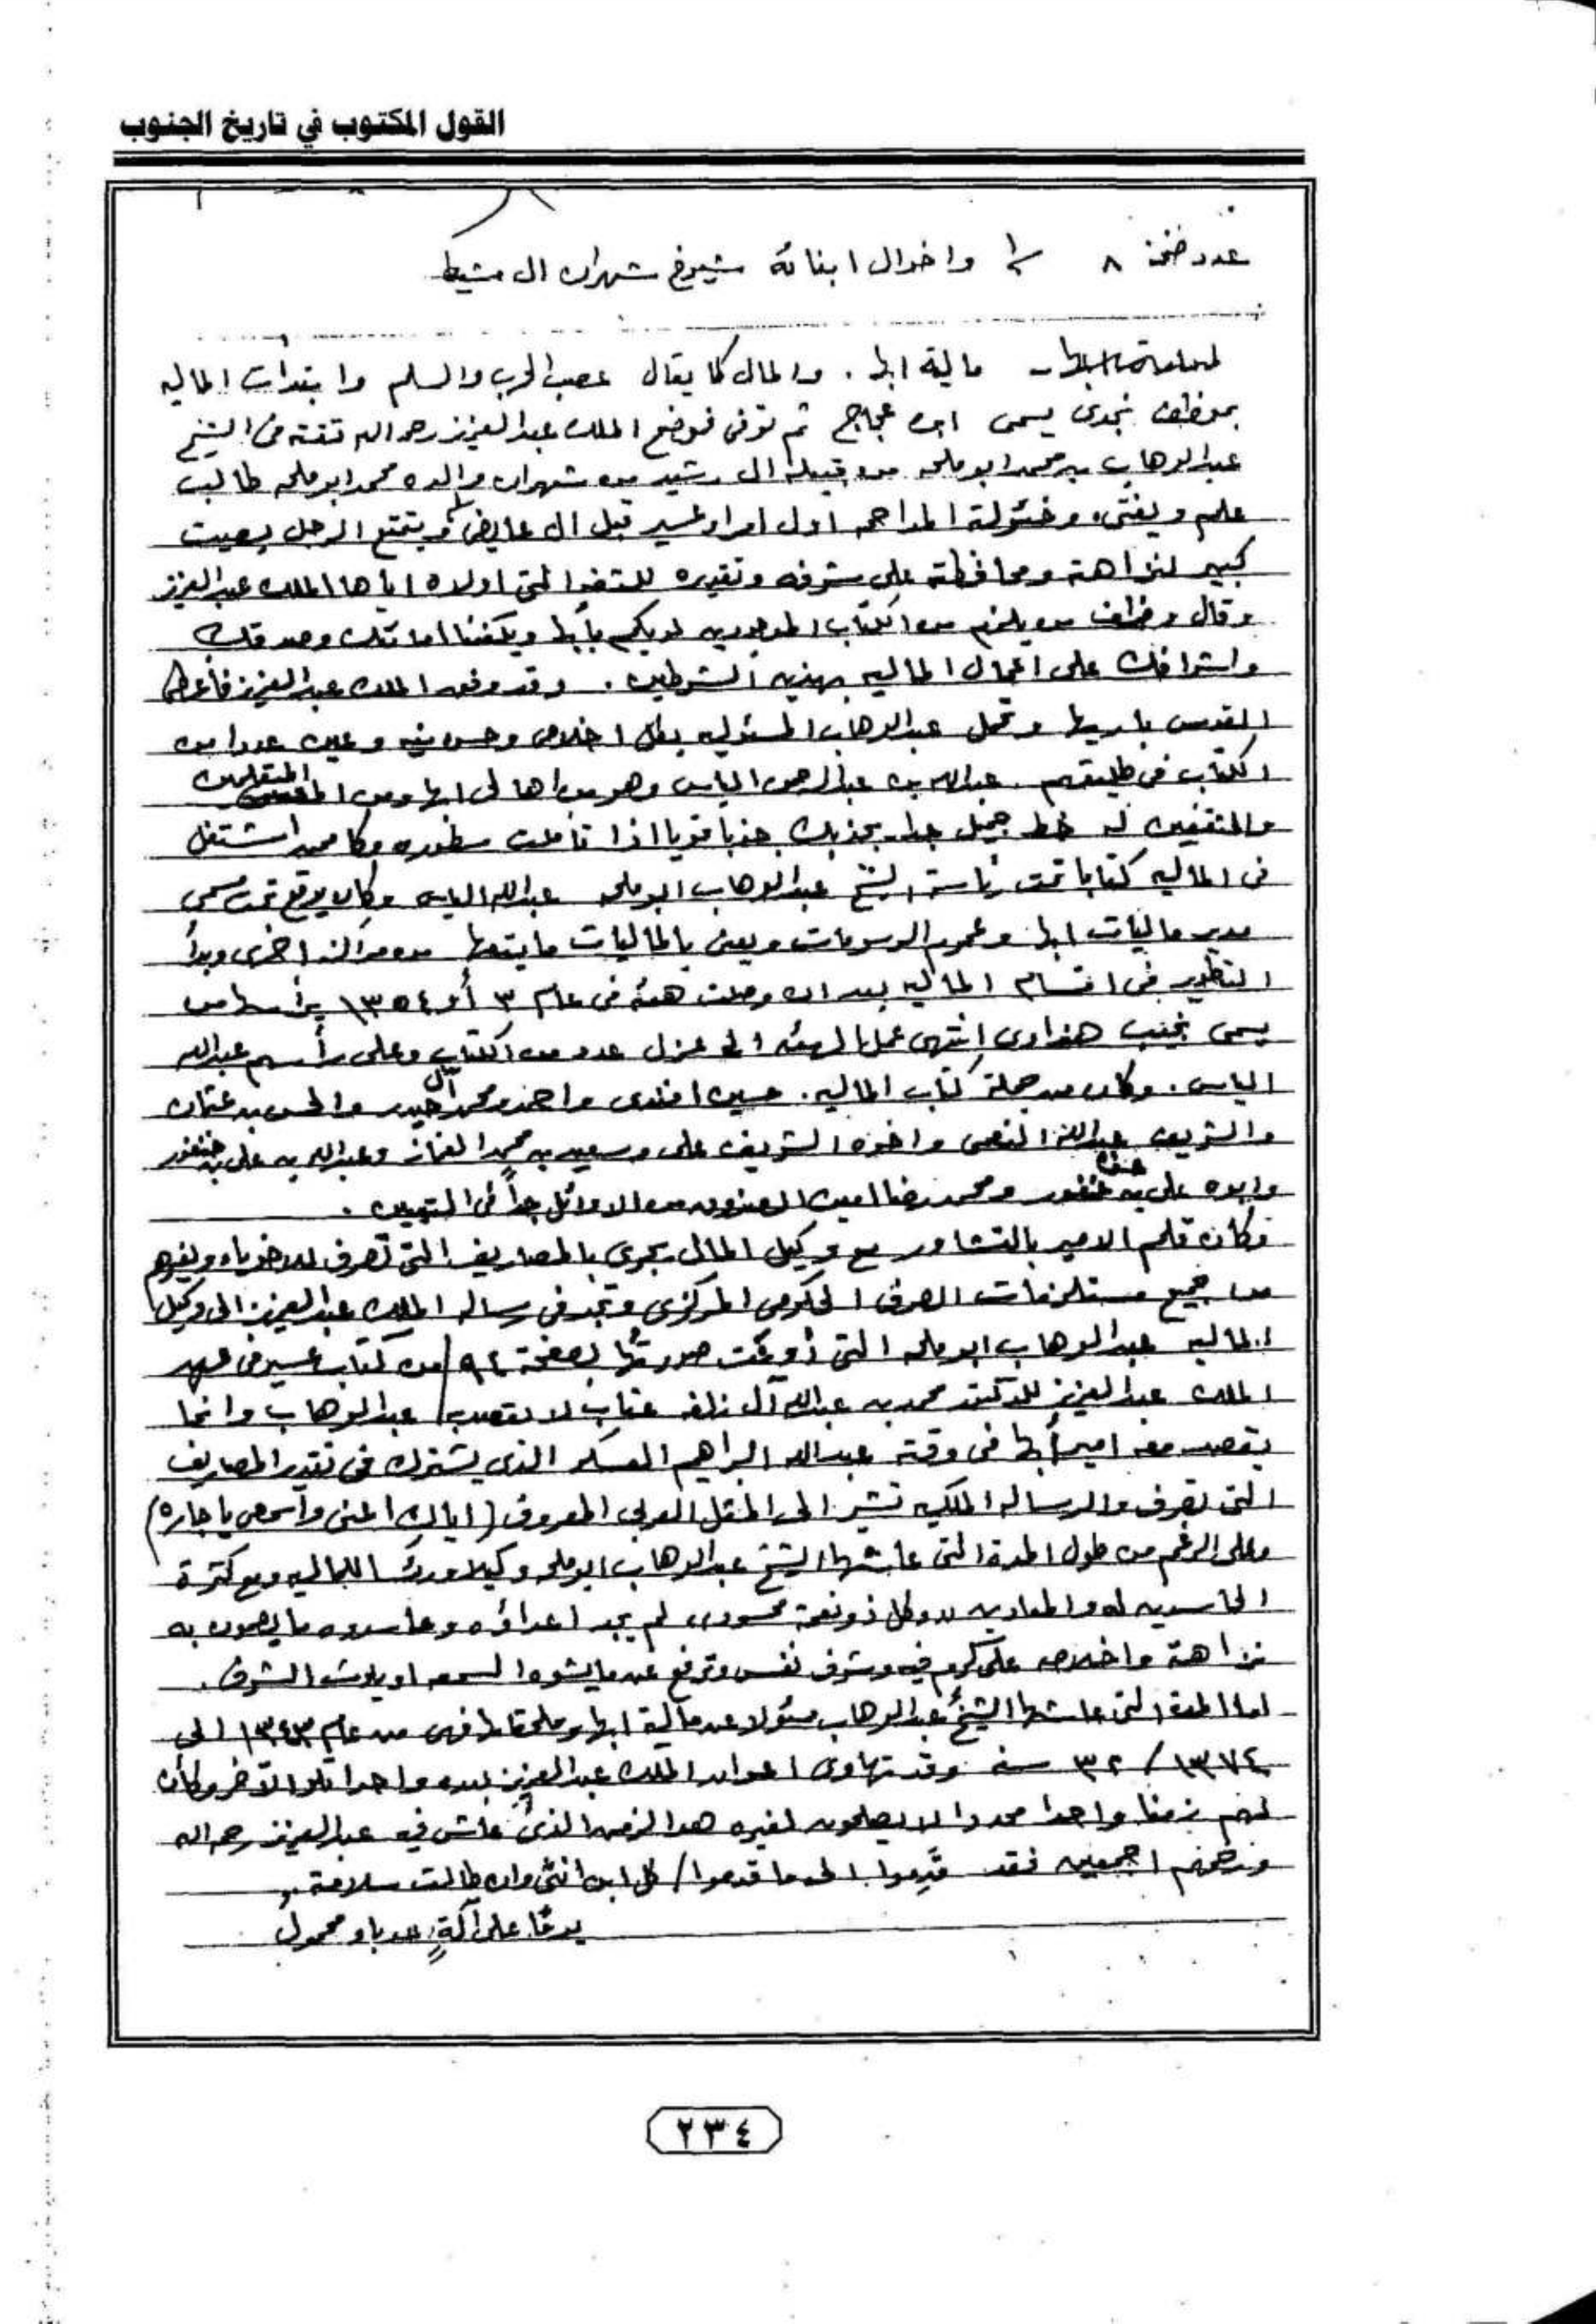 القول المكتوب في تاريخ الجنوب
عدد صفحة ٨ واخوال ابنائه شيوخ شهران ال مشيط
مالية ابها . والمال كما يقال عصب الحرب والسلم وابتدات الماليه
بموظف نجدى يسمى ابن عجاج ثم توفى فوضع الملك عبدالعزيز رحمه الله ثقته فى الشيخ
عبدالوهاب بن محمد ابوملحه من قبيلة ال رشيد من شهران والده محمد ابوملحه طالب
علم ويفتى، وخئولة المزاحمه اول امراء عسير قبل ال عايض ويتمتع الرجل بصيت
كبير لنزاهته ومحافظته على شرفه وتقديره للثقه التى اولاه اياها الملك عبدالعزيز
وقال وظف من يلزم من الكتاب الموجودين لديكم بأبها ويكفينا امانتك وصدقك
واشرافك على اعمال الماليه بهذين الشرطين . وقد وفق الملك عبدالعزيز فأعطى
القوس باريها وتحمل عبدالوهاب المسئوليه بكل اخلاص وحسن نيه وعين عددا من
الكتاب فى طليعتهم . عبدالله بن عبدالرحمن الياس وهو من اهالى ابها ومن المتعلمين
والمثقفين له خط جميل جدا يجذبك جذبا قويا اذا تأملت سطوره وكا ممن اشتغل
فى الماليه كتابا تحت رئاسة الشيخ عبدالوهاب ابوملحه عبدالله الياس وكان يوقع تحت مسمى
مدير ماليات ابها وعموم الرسومات ويعنى بالماليات مايتبعها من مراكز اخرى وبدأ
التطوير فى اقسام الماليه بعد ان وصلت هيئه فى عام ٣ أو ١٣٥٤ يرأسها من
يسمى نجيب هنداوى إنتهى عمل الهيئه الى عزل عدد من الكتاب وعلى رأسهم عبدالله
الياس . وكان من جملة كتاب الماليه . حسين افندى واحمد ومحمد آل حيدر والحسن بن عثمان
والشريف عبدالله النعمى واخوه الشريف على وسعيد بن محمد الغماز وعبدالله بن على بن خنفور
وابوه على بن خنفور ومحمد رضا امين الصندوق من الاوائل جداً فى التعيين .
وكان قلم الامير بالتشاور مع وكيل المال يجرى بالمصاريف التى تصرف للاخوياء ولغيرهم
من جميع مستلزمات الصرف الحكومى المركزى وتجد فى رساله الملك عبدالعزيز الى وكيل
الماليه عبدالوهاب ابوملحه التى أُودعت صورتُها بصفحة ٩٢/ من كتاب عسير فى عهد
الملك عبدالعزيز للدكتور محمد بن عبدالله آل زلفه عتاب لا يقصد به عبدالوهاب وانما
يقصد معه امير أبها فى وقته عبدالله ابراهيم العسكر الذى يشترك فى تقدير المصاريف
التى تصرف والرساله الملكيه تشير الى المثل العربى المعروف (اياك اعنى واسمعى ياجاره)
وعلى الرغم من طول المدة التى عاشها الشيخ عبدالوهاب ابوملحه وكيلا ورئيسا للماليه ومع كثرة
الحاسدين له والمعادين لان كل ذو نعمة محسود لم يجد اعداؤه وحاسدوه ما يصمون به
نزاهة واخلاص على كرم فيه وشرف نفس وترفع عن ما يشوه السمعه او يلوث الشرف .
اما المدة التى عاشها الشيخ عبدالوهاب مسئولا عن مالية ابها وملحقاتها فهى من عام ١٣٤٣ الى
١٣٧٤ / ٣٢ سنه وقد تهاوى اعوان الملك عبدالعزيز بعده واحدا تلو الآخر وكأن
لهم زمنا واحدا محددا لا يصلحون لغيره هو الزمن الذى عاش فيه عبدالعزيز رحمه الله
ورحمهم اجمعين فقد قدموا الى ما قدموا / كل ابن انثى وان طالت سلامته
يوماً على آلةٍ حدباء محمول
٢٣٤